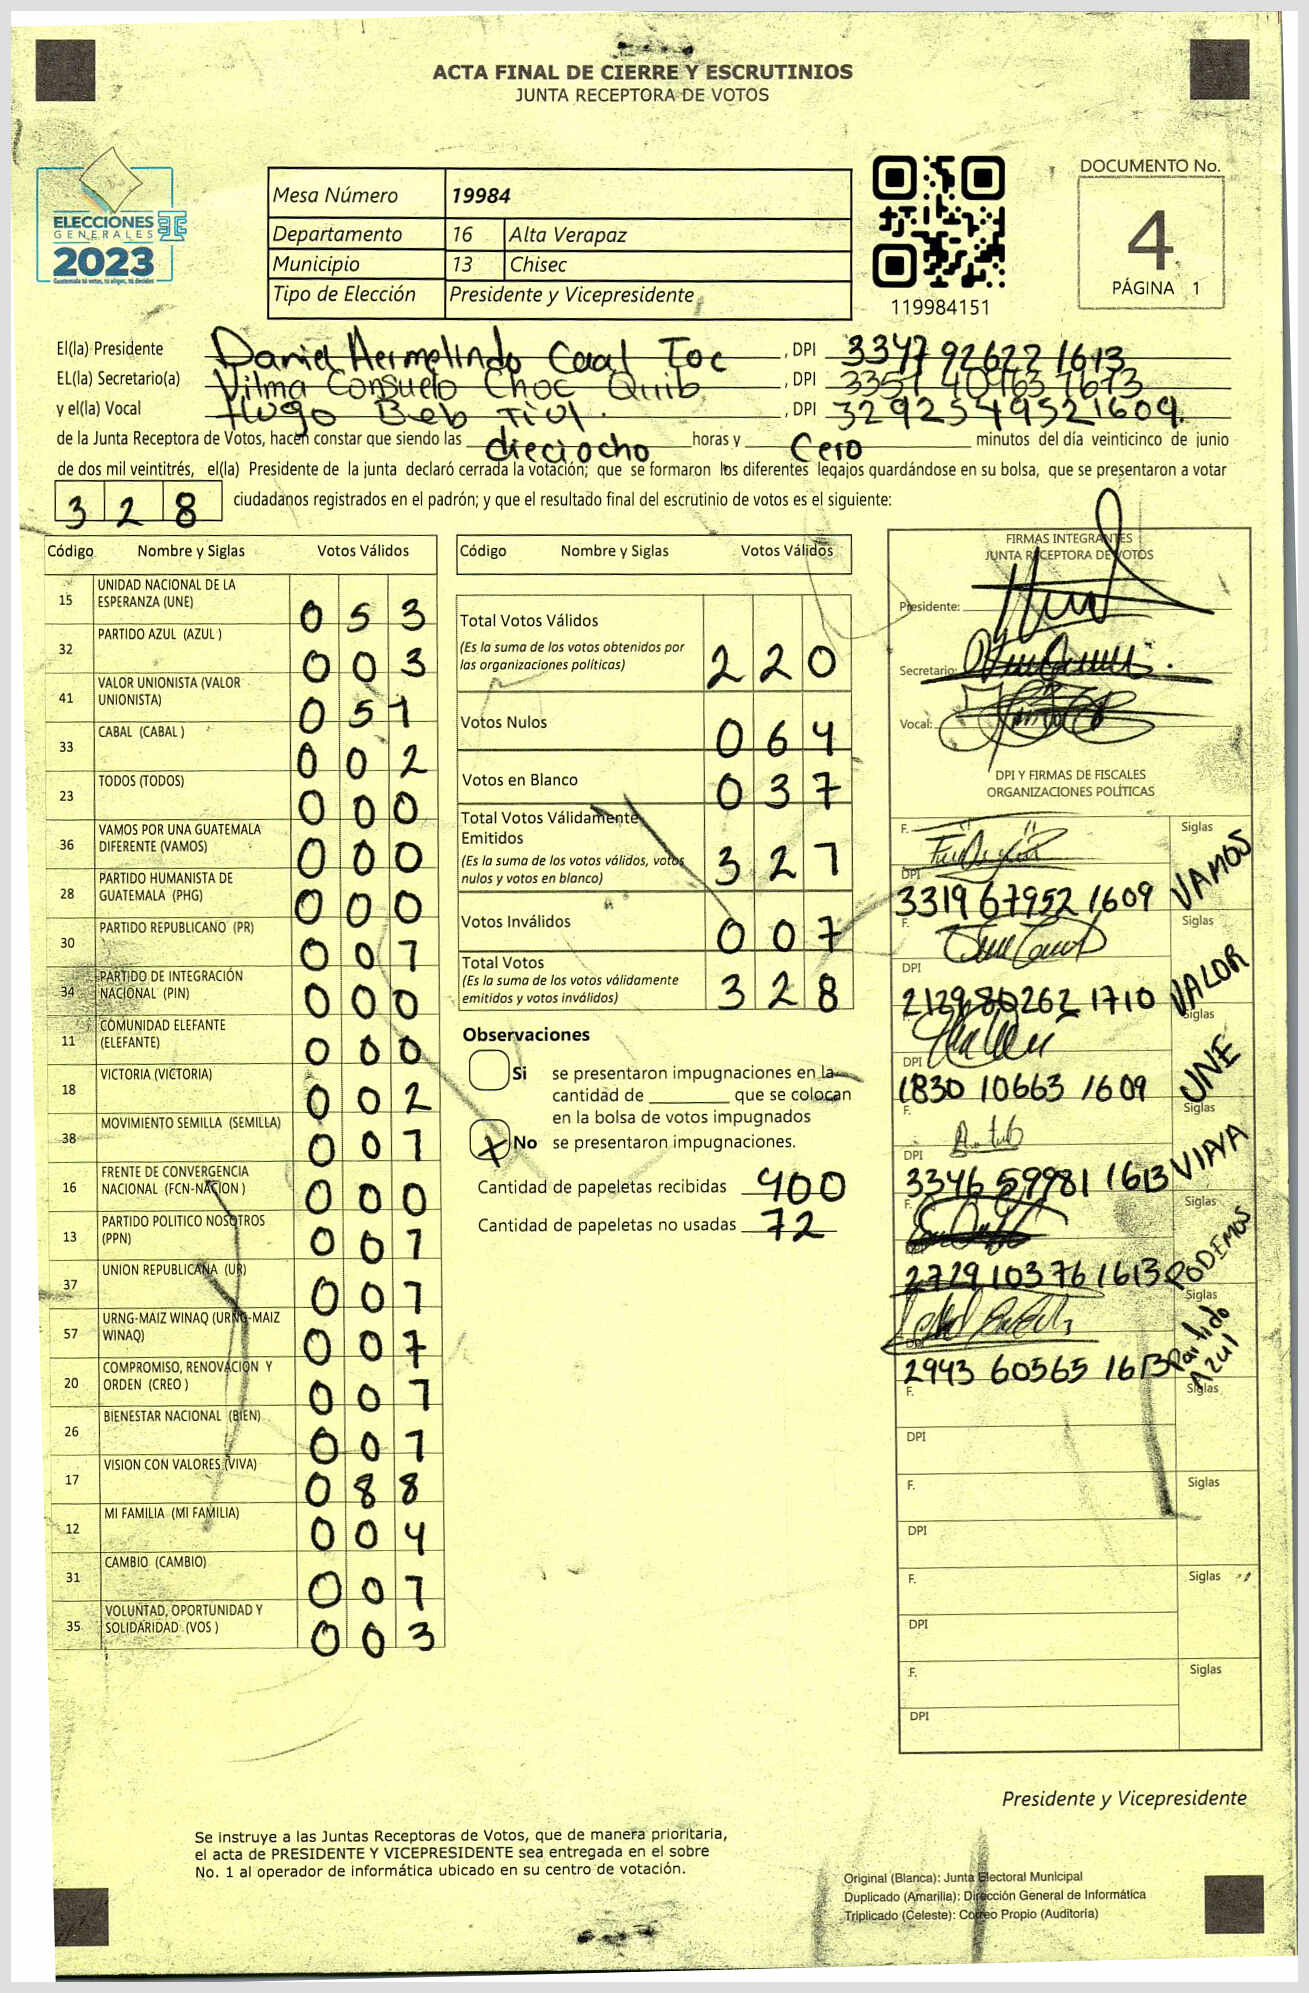 ACTA FINAL DE CIERRE Y ESCRUTINIOS
JUNTA RECEPTORA DE VOTOS
ELECCIONES
GENERALES
2023
Guatemala tú votas, tú eliges, tú decides
Mesa Número 19984
Departamento 16 Alta Verapaz
Municipio 13 Chisec
Tipo de Elección Presidente y Vicepresidente
119984151
DOCUMENTO No.
4
PÁGINA 1
El(la) Presidente Daniel Hermelindo Caal Toc , DPI 3347 92622 1613
EL(la) Secretario(a) Vilma Consuelo Choc Quib , DPI
y el(la) Vocal Hugo Beb Tiul. , DPI 3292549521609.
de la Junta Receptora de Votos, hacen constar que siendo las dieciocho horas y Cero minutos del día veinticinco de junio
de dos mil veintitrés, el(la) Presidente de la junta declaró cerrada la votación; que se formaron los diferentes legajos guardándose en su bolsa, que se presentaron a votar
3 2 8 ciudadanos registrados en el padrón; y que el resultado final del escrutinio de votos es el siguiente:
Código Nombre y Siglas Votos Válidos
15 UNIDAD NACIONAL DE LA ESPERANZA (UNE) 0 5 3
32 PARTIDO AZUL (AZUL ) 0 0 3
41 VALOR UNIONISTA (VALOR UNIONISTA) 0 5 1
33 CABAL (CABAL ) 0 0 2
23 TODOS (TODOS) 0 0 0
36 VAMOS POR UNA GUATEMALA DIFERENTE (VAMOS) 0 0 0
28 PARTIDO HUMANISTA DE GUATEMALA (PHG) 0 0 0
30 PARTIDO REPUBLICANO (PR) 0 0 1
34 PARTIDO DE INTEGRACIÓN NACIONAL (PIN) 0 0 0
11 COMUNIDAD ELEFANTE (ELEFANTE) 0 0 0
18 VICTORIA (VICTORIA) 0 0 2
38 MOVIMIENTO SEMILLA (SEMILLA) 0 0 1
16 FRENTE DE CONVERGENCIA NACIONAL (FCN-NACION ) 0 0 0
13 PARTIDO POLITICO NOSOTROS (PPN) 0 0 1
37 UNION REPUBLICANA (UR) 0 0 1
57 URNG-MAIZ WINAQ (URNG-MAIZ WINAQ) 0 0 7
20 COMPROMISO, RENOVACION Y ORDEN (CREO ) 0 0 1
26 BIENESTAR NACIONAL (BIEN) 0 0 1
17 VISION CON VALORES (VIVA) 0 8 8
12 MI FAMILIA (MI FAMILIA) 0 0 4
31 CAMBIO (CAMBIO) 0 0 1
35 VOLUNTAD, OPORTUNIDAD Y SOLIDARIDAD (VOS ) 0 0 3
Código Nombre y Siglas Votos Válidos
Total Votos Válidos 2 2 0
(Es la suma de los votos obtenidos por
las organizaciones políticas)
Votos Nulos 0 6 4
Votos en Blanco 0 3 7
Total Votos Válidamente
Emitidos 3 2 1
(Es la suma de los votos válidos, votos
nulos y votos en blanco)
Votos Inválidos 0 0 7
Total Votos 3 2 8
(Es la suma de los votos válidamente
emitidos y votos inválidos)
Observaciones
Si se presentaron impugnaciones en la
cantidad de ________ que se colocan
en la bolsa de votos impugnados
X No se presentaron impugnaciones.
Cantidad de papeletas recibidas 400
Cantidad de papeletas no usadas 72
FIRMAS INTEGRANTES
JUNTA RECEPTORA DE VOTOS
Presidente:
Secretario:
Vocal:
DPI Y FIRMAS DE FISCALES
ORGANIZACIONES POLÍTICAS
F. Siglas
DPI 3319 67952 1609 VAMOS
F. Siglas
DPI 2129 80262 1710 VALOR
F. Siglas
DPI 1830 10663 1609 UNE
F. Siglas
DPI 3346 59981 1613 VIVA
F. Siglas
2729 10376 1613 PODEMOS
Siglas
DPI 2943 60565 1613 Partido Azul
F. Siglas
DPI
F. Siglas
DPI
F. Siglas
DPI
F. Siglas
DPI
Presidente y Vicepresidente
Se instruye a las Juntas Receptoras de Votos, que de manera prioritaria,
el acta de PRESIDENTE Y VICEPRESIDENTE sea entregada en el sobre
No. 1 al operador de informática ubicado en su centro de votación.
Original (Blanca): Junta Electoral Municipal
Duplicado (Amarilla): Dirección General de Informática
Triplicado (Celeste): Correo Propio (Auditoría)